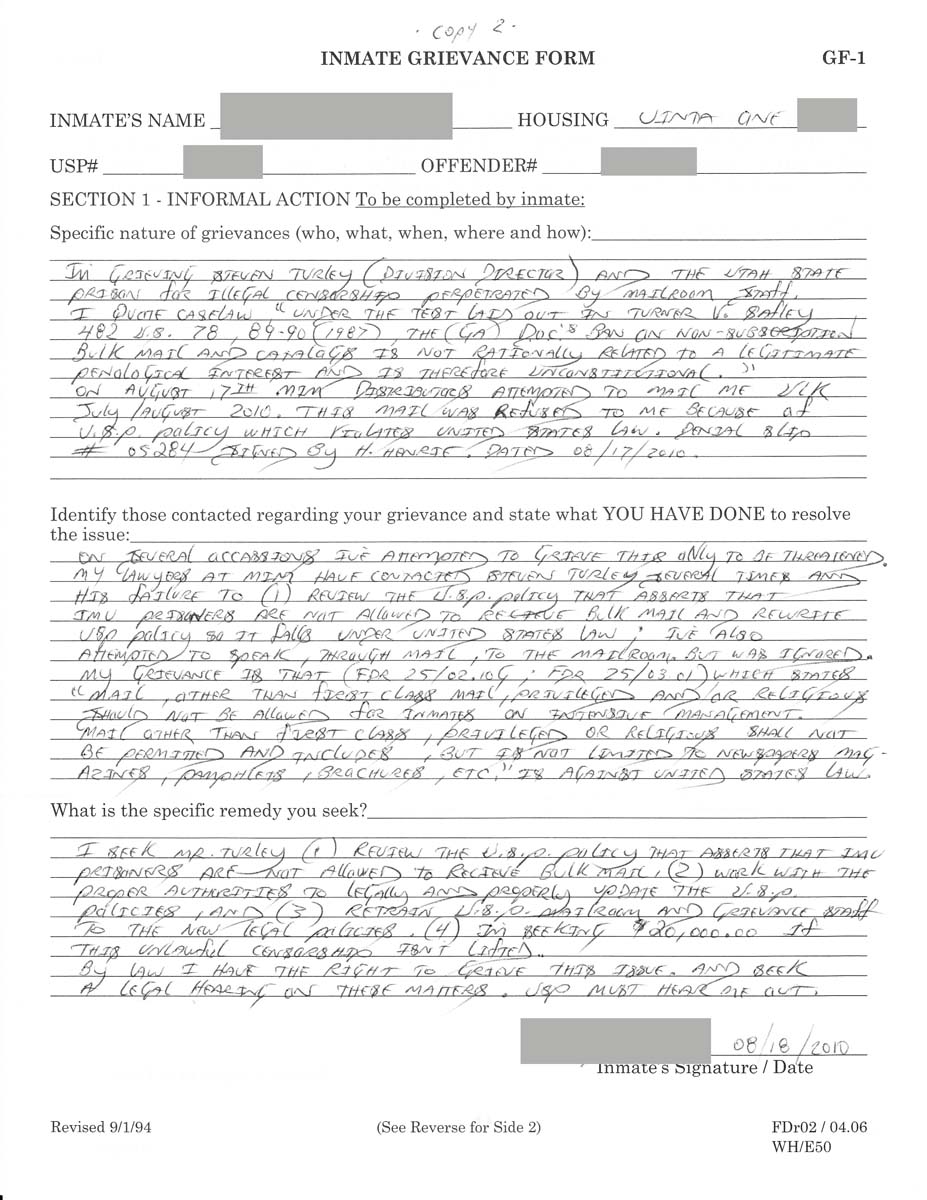 · COPY 2 ·
INMATE GRIEVANCE FORM GF-1
INMATE'S NAME HOUSING UINTA ONE
USP# OFFENDER#
SECTION 1 - INFORMAL ACTION To be completed by inmate:
Specific nature of grievances (who, what, when, where and how):
IM GRIEVING STEVEN TURLEY (DIVISION DIRECTOR) AND THE UTAH STATE
PRISON for ILLEGAL CENSORSHIP PERPETRATED BY MAILROOM STAFF.
I QUOTE CASELAW "UNDER THE TEST LAID OUT IN TURNER V. SAFLEY
482 U.S. 78, 89-90 (1987), THE (GA) DOC'S BAN ON NON-SUBSCRIPTION
BULK MAIL AND CATALOGS IS NOT RATIONALLY RELATED TO A LEGITIMATE
PENOLOGICAL INTEREST AND IS THEREFORE UNCONSTITUTIONAL."
ON AUGUST, 17TH MIM DISTRIBUTORS ATTEMPTED TO MAIL ME ULK
July/AUGUST 2010. THIS MAIL WAS REFUSED TO ME BECAUSE of
U.S.P. POLICY WHICH VIOLATES UNITED STATES LAW. DENIAL SLIP
# 05284 SIGNED By H. HENRIE. DATED 08/17/2010.
Identify those contacted regarding your grievance and state what YOU HAVE DONE to resolve
the issue:
ON SEVERAL OCCASSIONS IVE ATTEMPTED TO GRIEVE THIS ONLY TO BE THREATENED.
MY LAWYERS AT MIM HAVE CONTACTED STEVEN TURLEY SEVERAL TIMES AND
HIS FAILURE TO (1) REVIEW THE U.S.P. POLICY THAT ASSERTS THAT
IMU PRISONERS ARE NOT ALLOWED TO RECIEVE BULK MAIL AND REWRITE
USP POLICY SO IT FALLS UNDER UNITED STATES LAW; IVE ALSO
ATTEMPTED TO SPEAK, THROUGH MAIL, TO THE MAILROOM. BUT WAS IGNORED.
MY GRIEVANCE IS THAT (FDR 25/02.10G; FDR 25/03.01) WHICH STATES
"MAIL, OTHER THAN FIRST CLASS MAIL, PRIVILEGED AND/OR RELIGIOUS
SHOULD NOT BE ALLOWED for INMATES ON INTENSIVE MANAGEMENT.
MAIL OTHER THAN FIRST CLASS, PRIVILEGED OR RELIGIOUS SHALL NOT
BE PERMITTED AND INCLUDES, BUT IS NOT LIMITED TO NEWSPAPERS MAG-
AZINES, PAMPHLETS, BROCHURES, ETC." IS AGAINST UNITED STATES LAW.
What is the specific remedy you seek?
I SEEK MR. TURLEY (1) REVIEW THE U.S.P. POLICY THAT ASSERTS THAT IMU
PRISONERS ARE NOT ALLOWED TO RECIEVE BULK MAIL, (2) WORK WITH THE
PROPER AUTHORITIES TO LEGALLY AND PROPERLY UPDATE THE U.S.P.
POLICIES, AND (3) RETRAIN U.S.P. MAILROOM AND GRIEVANCE STAFF
TO THE NEW LEGAL POLICIES. (4) IM SEEKING $20,000.00 IF
THIS UNLAWFUL CENSORSHIP ISNT LIFTED..
BY LAW I HAVE THE RIGHT TO GRIEVE THIS ISSUE. AND SEEK
A LEGAL HEARING ON THESE MATTERS. USP MUST HEAR ME OUT.
08/18/2010
Inmate's Signature / Date
Revised 9/1/94 (See Reverse for Side 2) FDr02 / 04.06
WH/E50